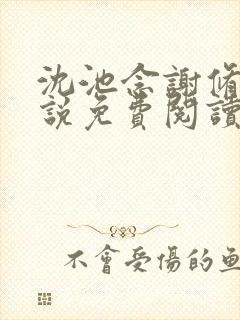 沈池念謝脩
說免費閱讀
不會受傷的魚